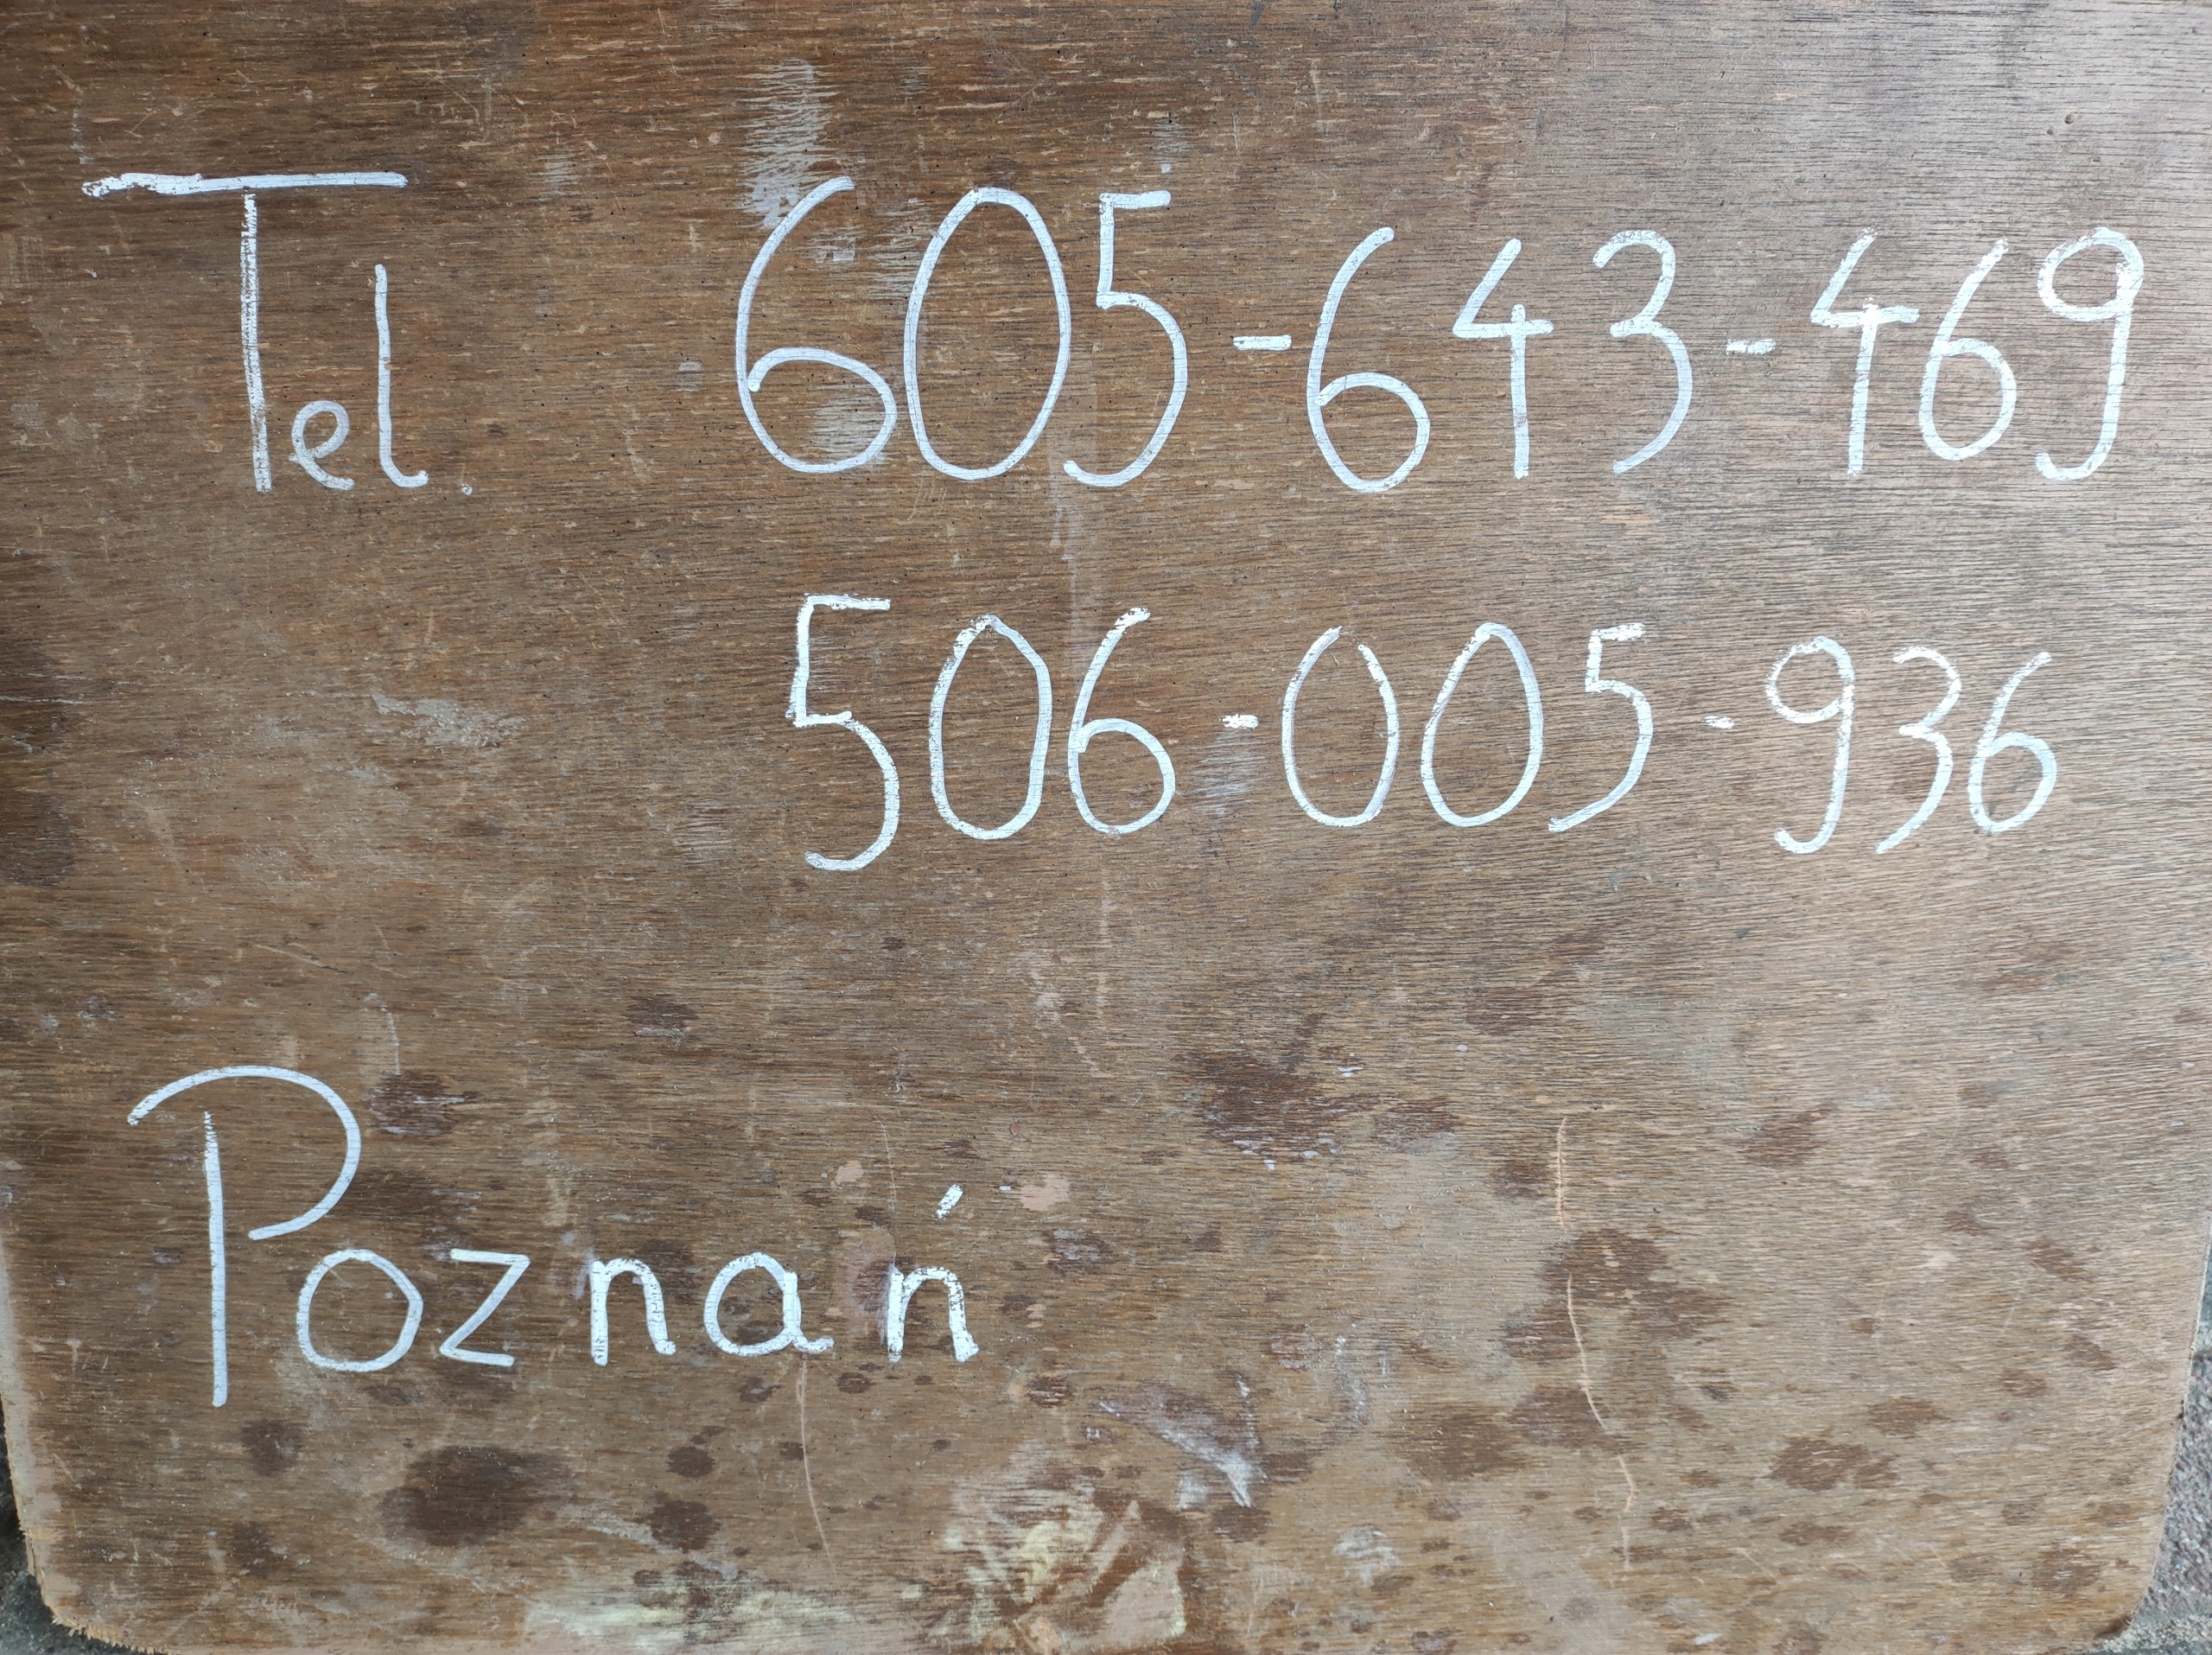 Tel. 605-643-469
506-005-936
Poznań